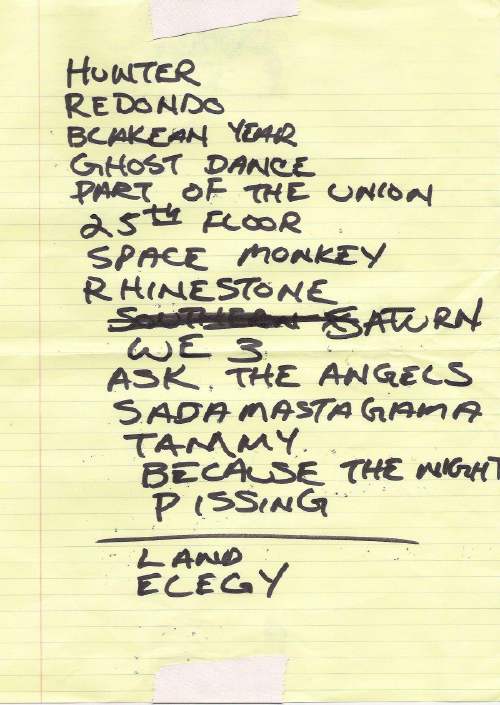 HUNTER
REDONDO
BLAKEAN YEAR
GHOST DANCE
PART OF THE UNION
25th FLOOR
SPACE MONKEY
RHINESTONE
SOUTHERN SATURN
WE 3
ASK THE ANGELS
SADAMASTAGAMA
TAMMY
BECAUSE THE NIGHT
PISSING
LAND
ELEGY